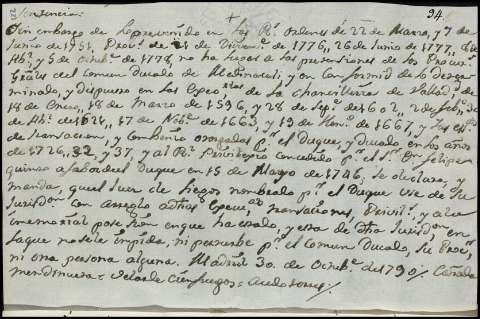 Sentencia.
+
94.
Sin embargo de lo prevenido en las Rs. Ordenes de 22 de Marzo, y 7 de
Junio de 1751, Provn. de 21 de de 1776, 26 de Junio de 1777, 8 de
Abl. y 5 de octubre. de 1778, no ha lugar a las pretensiones de los Procurs.
Grales del comun Ducado de Medinaceli; y en Conformidd. de lo deter
minado, y dispuesto en las de la chancilleria de Vallad.
18 de Enero, 18 de Marzo de 1596, y 28 de Sepe. de 1602, 2 de Feb. 30
de Ab. de 1621, 17 de Nobe. de 1663 y 19 de de 1667, y las
de transacion, y Conbenio otorgadas pr. el Duque, y ducado en los años
de 1726, 32, y 37, y al Rl. Privilegio concedido pr. el Sr. Dn. Felipe
quinto a fabor del Duque en 15 de Marzo de 1746, se declara, y
manda, que el Juez de nombrado pr. el Duque use de su
Jurisdon. con arreglo a dhas transaciones, Privils. y a la
inmemorial posesion en que ha estado, y esta de dha Jurisdon. en
la que no se le impida, ni perturbe pr. el comun Ducado, su Procr.
ni otra persona alguna. Madrid 30. de Octubre. de 1790/. Cañada
mendinueta = Velarde Cienfuegos =